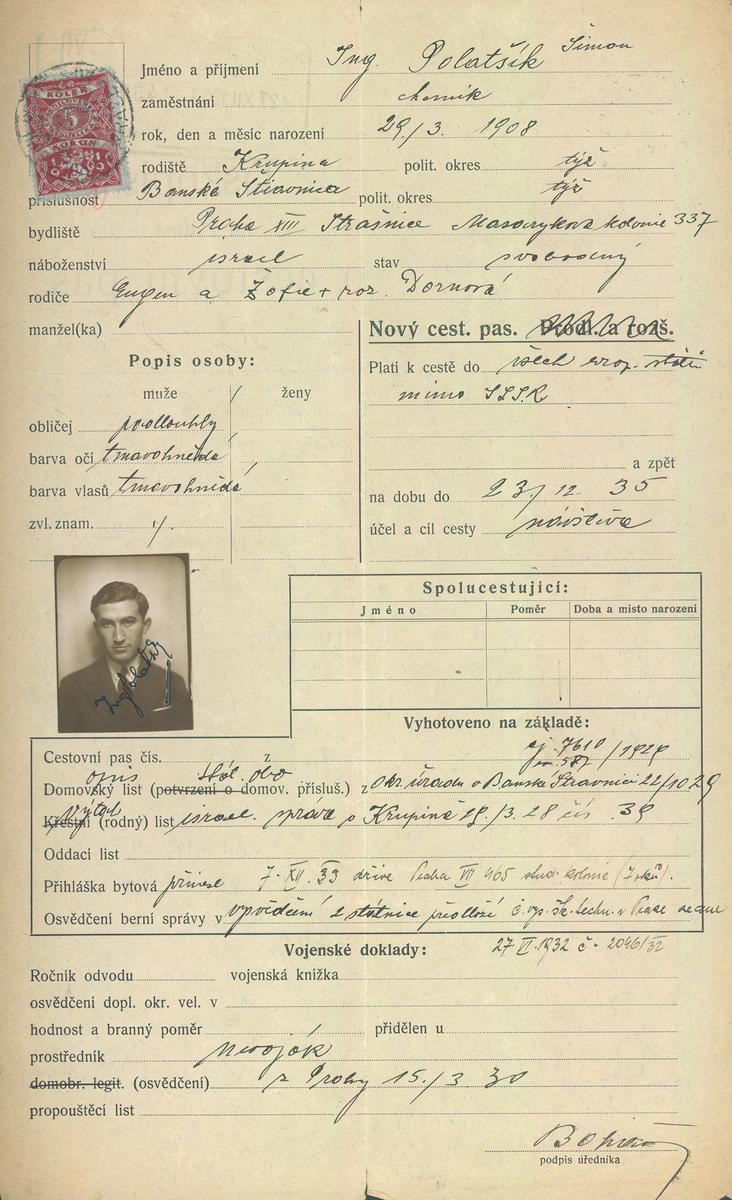 KOLEK
5
KORUN
1919
Jméno a příjmení Ing. Polatšík Šimon
zaměstnání chemik
rok, den a měsíc narození 29./3. 1908
rodiště Krupina polit. okres týž
příslušnost Banská Štiavnica polit. okres týž
bydliště Praha XIII Strašnice Masarykova kolonie 337
náboženství israel stav svobodný
rodiče Eugen a Žofie + roz. Dornová
manžel(ka)
Nový cest. pas. Prodl. a rozš.
Platí k cestě do všech evrop. států
mimo SSSR
a zpět
na dobu do 23/12. 35
účel a cíl cesty návštěva
Popis osoby:
muže / ženy
obličej podlouhlý
barva očí tmavohnědá
barva vlasů tmavohnědá
zvl. znam. /.
Ing Polatšík
Spolucestující:
Jméno Poměr Doba a místo narození
Vyhotoveno na základě:
Cestovní pas čís. z čj. 7610/1929
587
opis stát. obč
Domovský list (potvrzení o domov. přísluš.) z okr. úřadu v Banské Štiavnici 22/10 29
výtah
Křestní (rodný) list israel. správa v Krupině 28./3. 28 čís. 39
Oddací list
Přihláška bytová přinesl 7. XII. 33 dříve Praha VII 465 stud. kolonie (7 roků).
Osvědčení berní správy v vysvědčení 2 státnice předloží č. vys. šk. techn. v Praze ze dne
27 VI. 1932 č. 2046/32
Vojenské doklady:
Ročník odvodu vojenská knížka
osvědčení dopl. okr. vel. v
hodnost a branný poměr přidělen u
prostředník nevoják
domobr. legit. (osvědčení) z Prahy 15./3 30
propouštěcí list
podpis úředníka